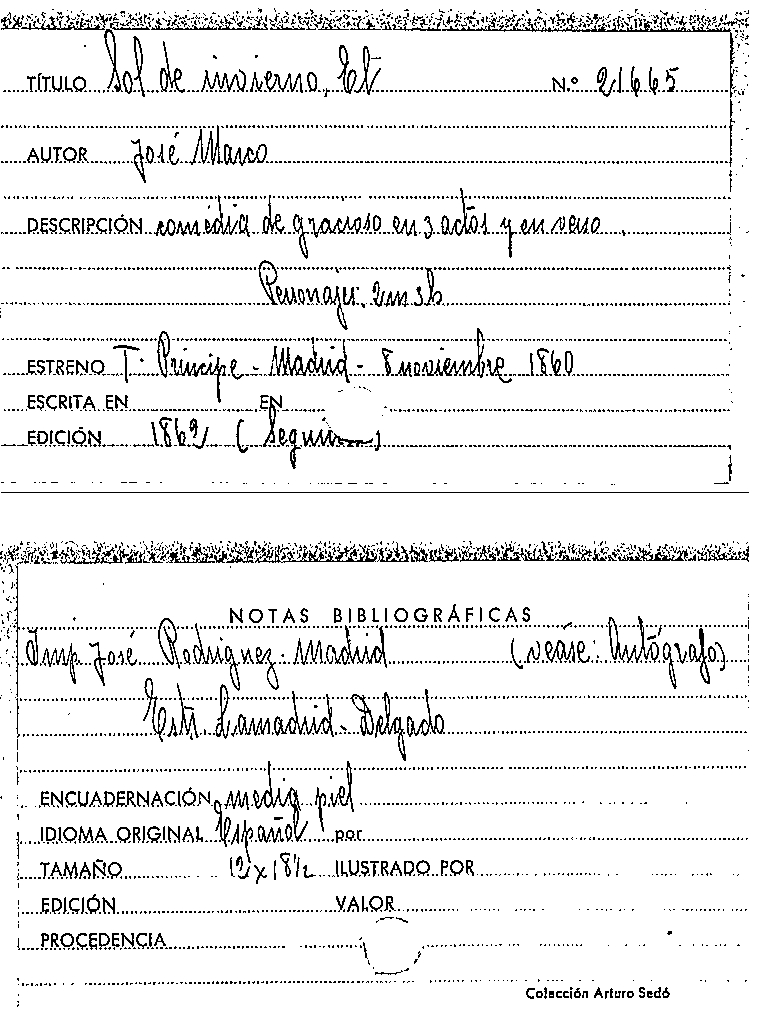 TÍTULO Sol de invierno, El N.º 21665
AUTOR José Marco
DESCRIPCIÓN comedia de gracioso en 3 actos y en verso.
Personajes: 2m 3h
ESTRENO T. Príncipe - Madrid - 8 noviembre 1860
ESCRITA EN EN
EDICIÓN 1862 (
NOTAS BIBLIOGRÁFICAS
Imp. José Rodríguez - Madrid (veáse: Autógrafo)
Estr. Lamadrid - Delgado
ENCUADERNACIÓN media piel
IDIOMA ORIGINAL Español por
TAMAÑO 12 x 18½ ILUSTRADO POR
EDICIÓN VALOR
PROCEDENCIA
Colección Arturo Sedó